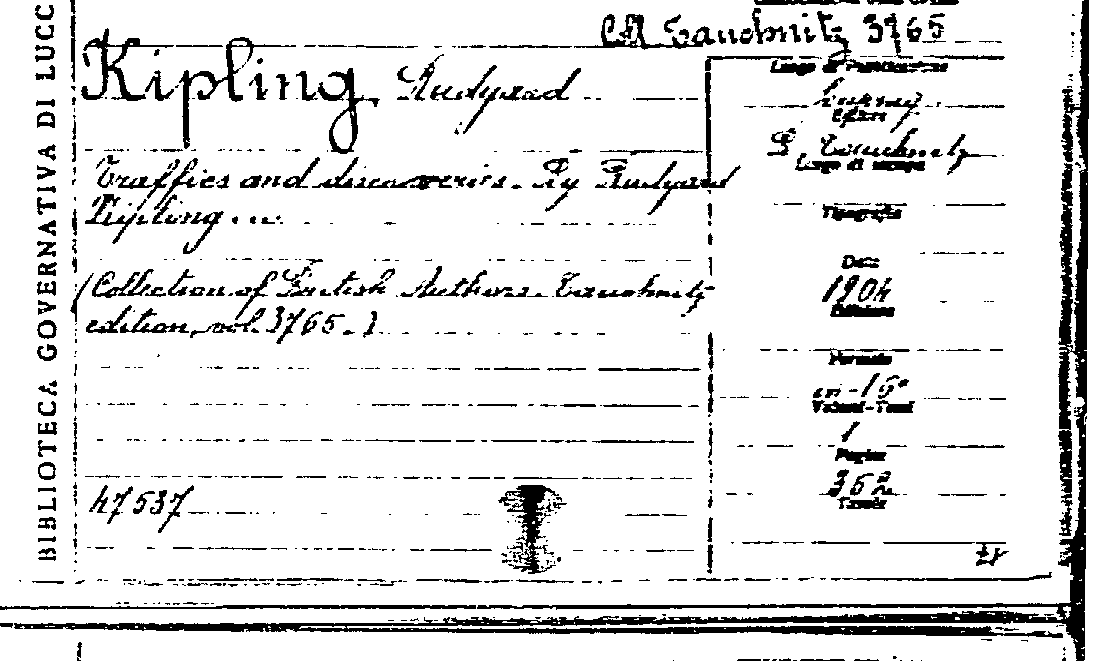 BIBLIOTECA GOVERNATIVA DI LUCC
Coll Tauchnitz 3765
Kipling, Rudyard
Luogo di Pubblicazione
Editore
B. Tauchnitz
Luogo di stampa
Traffics and discoveries. By Rudyard
Kipling...
Tipografia
Data
1904
Edizione
(Collection of British Authors. Tauchnitz
edition, vol. 3765.)
Formato
in-16°
Volumi-Tomi
1
Pagine
352
Tavole
47537